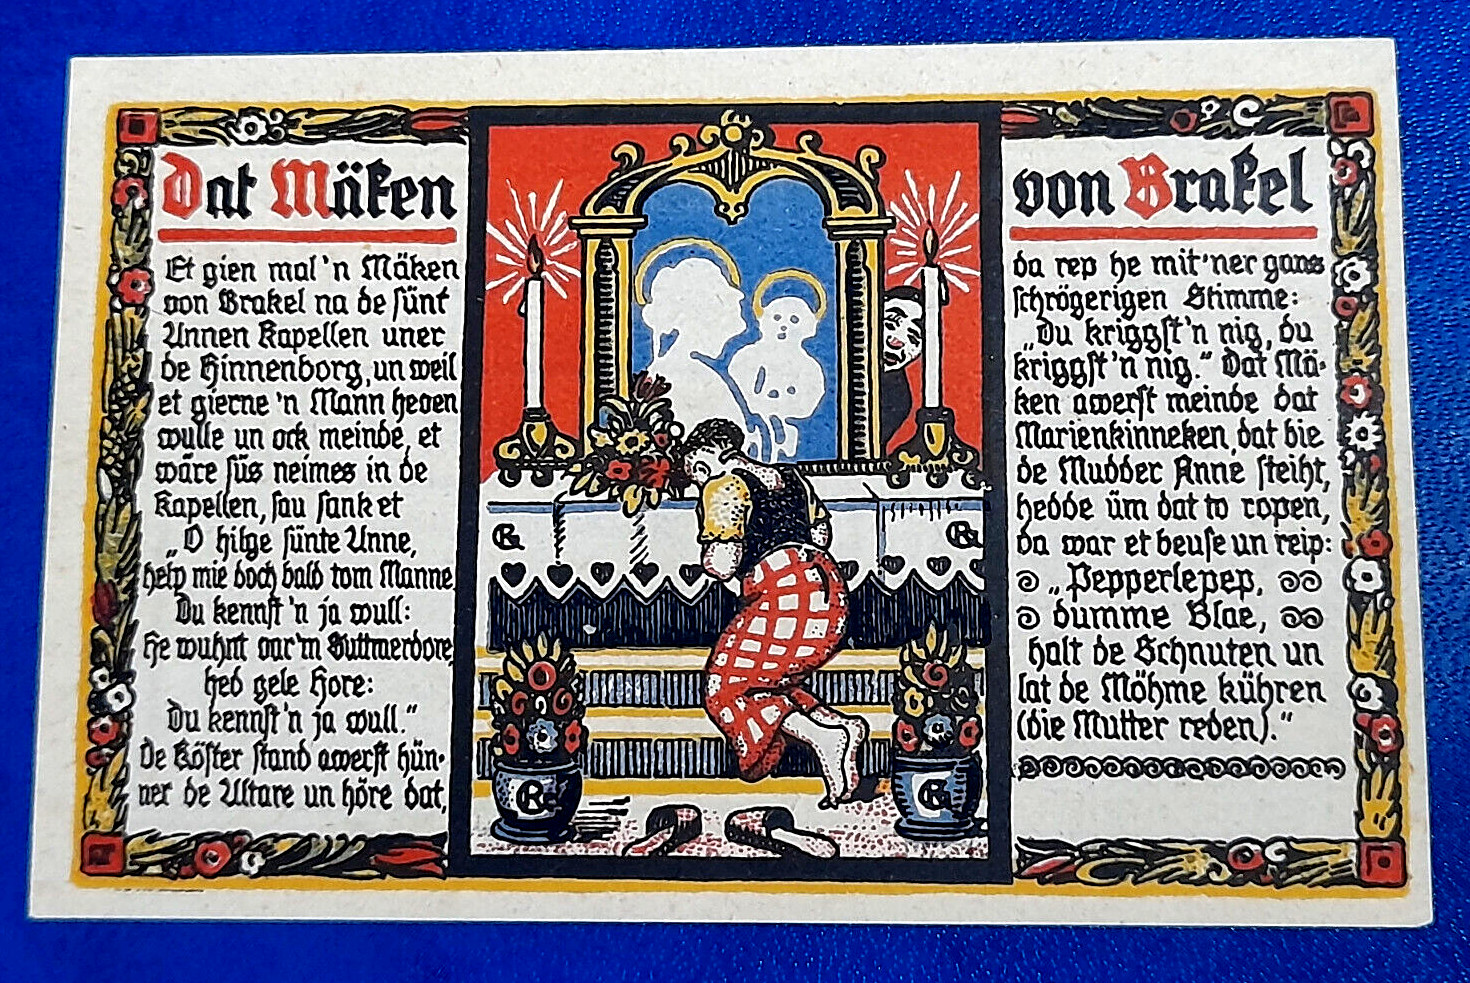 Dat Mäken
Et gien mal 'n Mäken
von Brakel na de sünt
Annen Kapellen uner
de Hinnenborg, un weil
et gierne 'n Mann heven
wulle un ock meinde, et
wäre süs neimes in de
Kapellen, sau sank et
„O hilge sünte Anne,
help mie doch bald tom Manne
Du kennst 'n ja wull:
He wuhnt var'm Suttmerdore,
hed gele Hore:
Du kennst'n ja wull.“
De Köster stand awerst hün-
ner de Altare un höre dat,
von Brakel
da rep he mit'ner gans
schrögerigen Stimme:
„Du kriggst'n nig, du
kriggst'n nig.“ Dat Mä-
ken awerst meinde dat
Marienkinneken, dat bie
de Mudder Anne steiht,
hedde üm dat to ropen,
da war et beuse un reip:
„Pepperlepep,
dumme Blae,
halt de Schnuten un
lat de Möhme kühren
(die Mutter reden).“